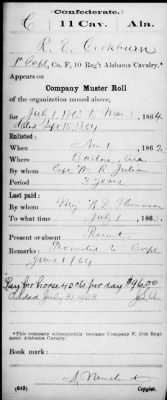 Confederate.
C 11 Cav. Ala.
R. E. Cockburn
Corpl, Co. F, 10 Reg't Alabama Cavalry.*
Appears on
Company Muster Roll
of the organization named above,
for July 1, 1863 to Mar 1, 1864.
dated Sept 15, 1864
Enlisted:
When Nov 1, 1862
Where Ala.
By whom Capt W. R. Julian
Period 3 years
Last paid:
By whom Maj
To what time July 1, 1863.
Present or absent Present
Remarks: Promoted to Corpl
June 1/64
Pay for horse 40 cts per day $96.00
*This company subsequently became Company F, 11th Regiment Alabama Cavalry.
Book mark:
(642) Copyist.